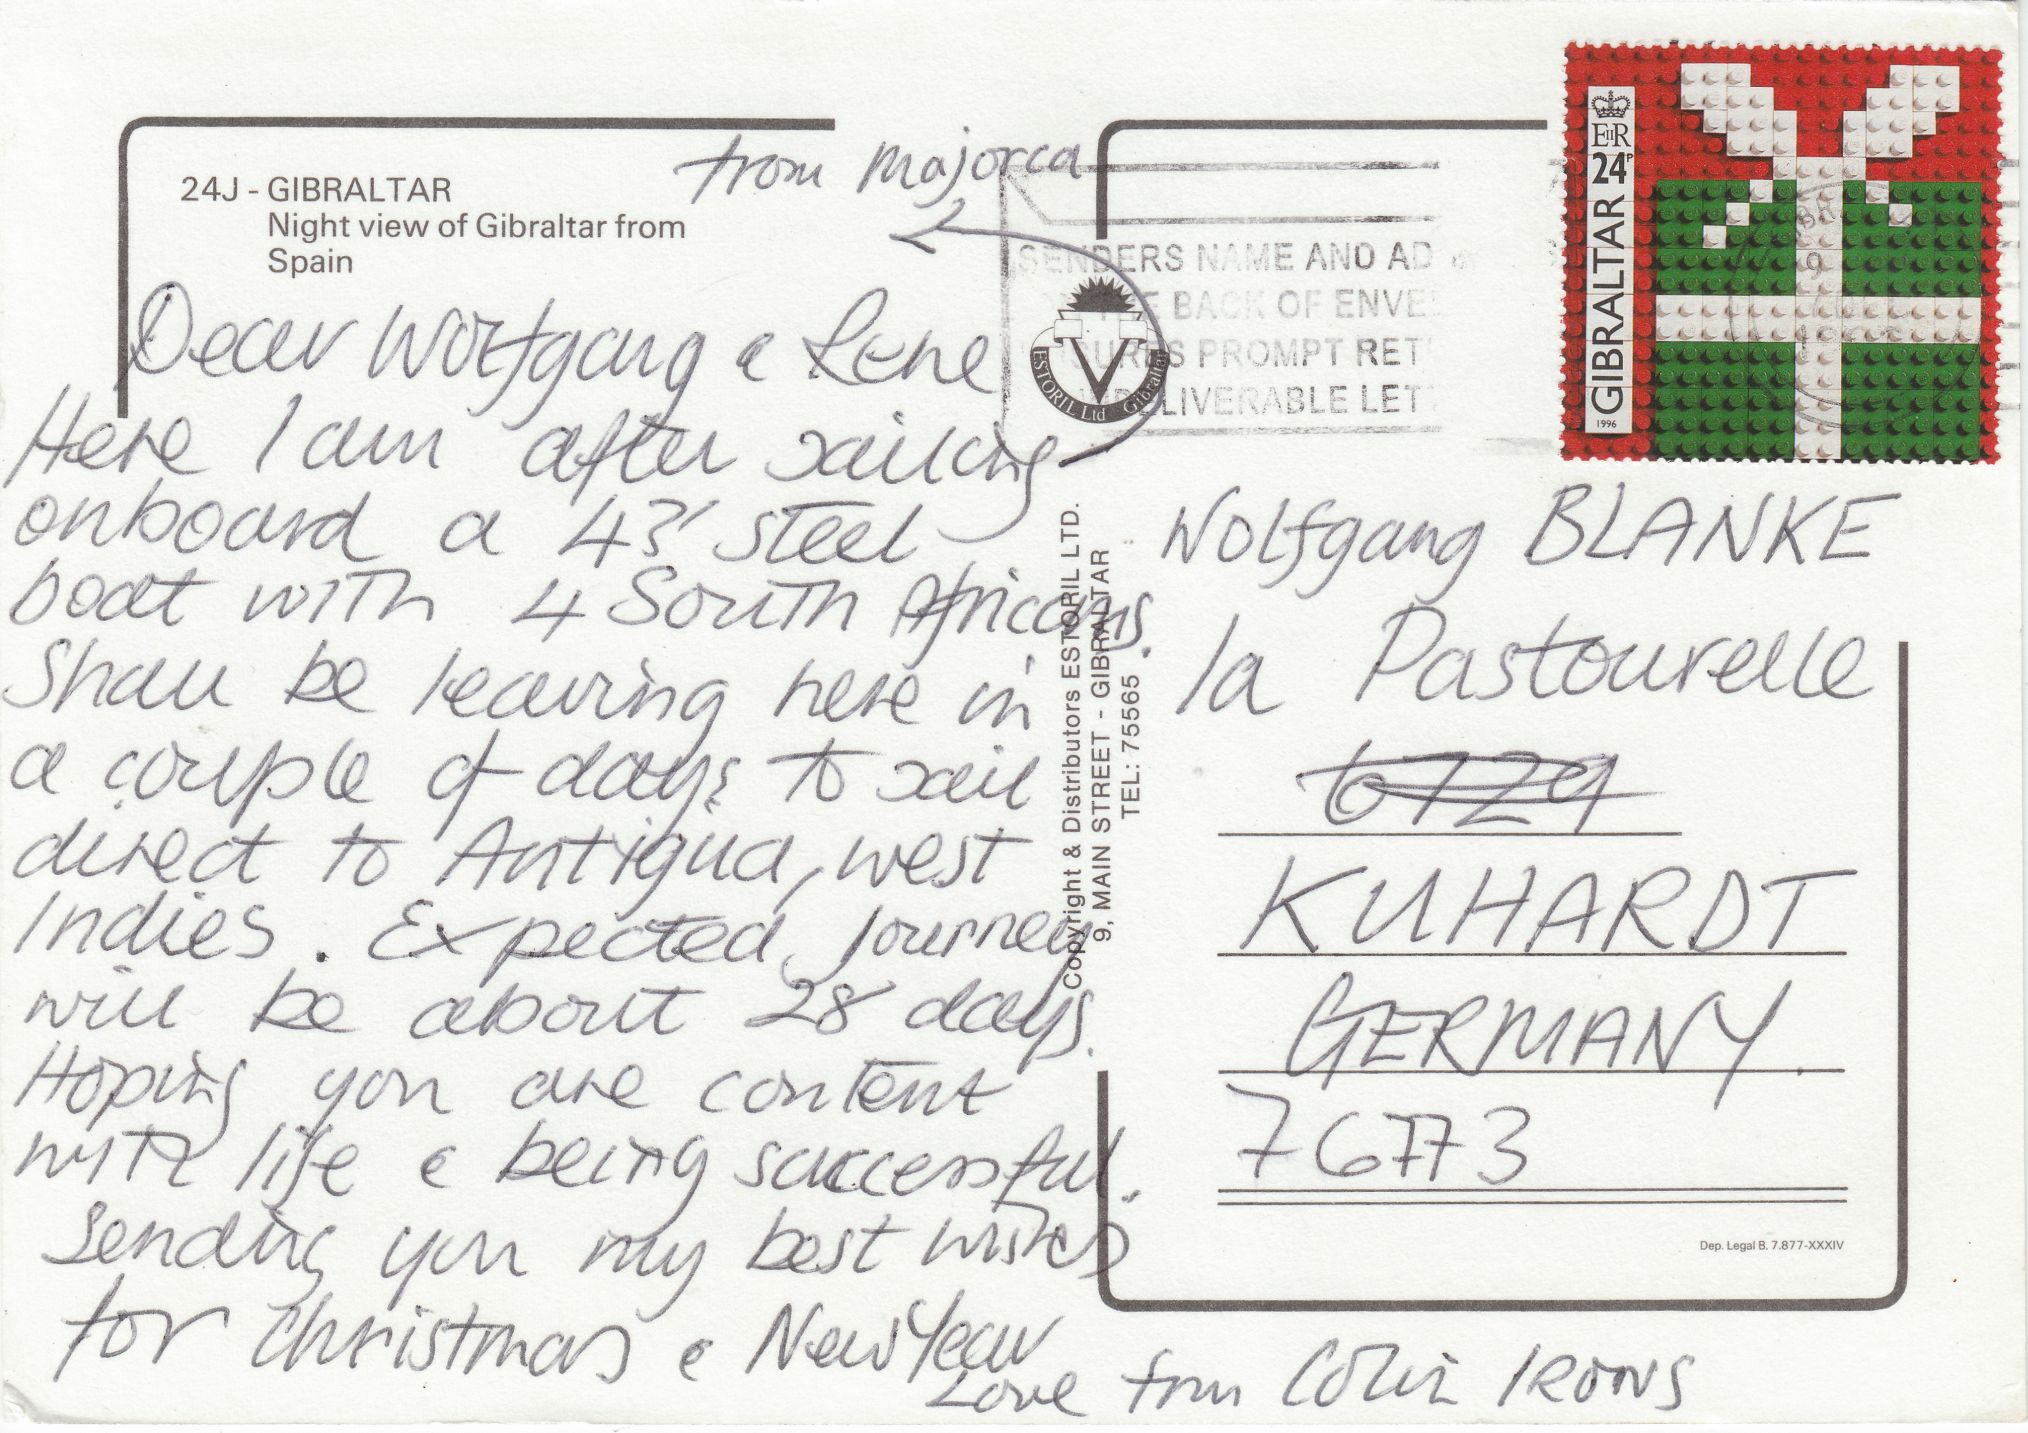 24J - GIBRALTAR
Night view of Gibraltar from
Spain
from Majorca
Dear Wolfgang & Lene
Here I am after sailing
onboard a 43' steel
boat with 4 South Africans.
Shall be leaving here in
a couple of days to sail
direct to Antigua, West
Indies. Expected journey
will be about 28 days.
Hoping you are content
with life & being successful.
Sending you my best wishes
for Christmas & New Year
Love from Colin IRONS
ESTORIL Ltd Gibraltar
Copyright & Distributors ESTORIL LTD.
9, MAIN STREET - GIBRALTAR
TEL: 75565
SENDERS NAME AND AD
BACK OF ENVE
SURES PROMPT RET
DELIVERABLE LET
EIIR
24P
GIBRALTAR
1996
Wolfgang BLANKE
la Pastourelle
6729
KUHARDT
GERMANY.
76773
Dep. Legal B. 7.877-XXXIV